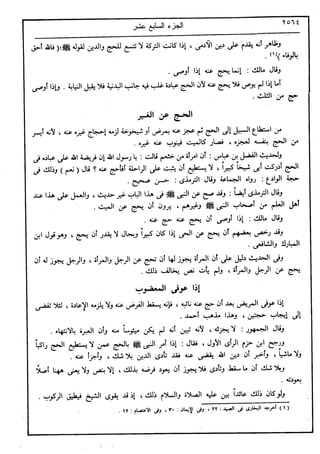 ٢٥٦٤
الجزء السابع عشر
وظاهر أنه يقدم على دين الآدمى ، إذا كانت التركة لا تتسع للحج والدين لقوله ﷺ: ( فالله أحق
بالوفاء )(١) .
وقال مالك : إنما يحج عنه إذا أوصى .
أما إذا لم يوص فلا يحج عنه لأن الحج عبادة غلب فيه جانب البدنية فلا يقبل النيابة . وإذا أوصى
حج من الثلث .
الحج عن الغير
من استطاع السبيل إلى الحج ثم عجز عنه بمرض أو شيخوخة لزمه إحجاج غيره عنه ، لأنه أيس
من الحج بنفسه لعجزه ، فصار كالميت فينوب عنه غيره .
ولحديث الفضل بن عباس : أن امرأة من خثعم قالت : يا رسول الله إن فريضة الله على عباده فى
الحج أدركت أبى شيخاً كبيراً ، لا يستطيع أن يثبت على الراحلة أفأحج عنه ؟ قال ( نعم ) وذلك فى
حجة الوداع : رواه الجماعة وقال الترمذى : حسن صحيح .
وقال الترمذى أيضاً : وقد صح عن النبى ﷺ فى هذا الباب غير حديث ، والعمل على هذا عند
أهل العلم من أصحاب النبى ﷺ وغيرهم ، يرون أن يحج عن الميت .
وقال مالك : إذا أوصى أن يحج عنه حج عنه .
وقد رخص بعضهم أن يحج عن الحى إذا كان كبيراً وبحال لا يقدر أن يحج ، وهو قول ابن
المبارك والشافعى .
وفى الحديث دليل على أن المرأة يجوز لها أن تحج عن الرجل والمرأة ، والرجل يجوز له أن
يحج عن الرجل والمرأة ، ولم يأت نص يخالف ذلك .
إذا عوفى المعضوب
إذا عوفى المريض بعد أن حج عنه نائبه ، فإنه يسقط الفرض عنه ولا يلزمه الإعادة ، لئلا تفضى
إلى إيجاب حجتين ، وهذا مذهب أحمد .
وقال الجمهور : لا يجزئه ، لأنه تبين أنه لم يكن ميئوساً منه وأن العبرة بالانتهاء .
ورجح ابن حزم الرأى الأول ، فقال : إذا أمر النبى ﷺ بالحج عمن لا يستطيع الحج راكباً
ولا ماشياً ، وأخبر أن دين الله يقضى عنه فقد تأدى الدين بلا شك ، وأجزأ عنه .
وبلا شك أن ما سقط وتأدى فلا يجوز أن يعود فرضه بذلك ، إلا بنص ولا يعنى ههنا أصلاً
بعودته .
ولو كان ذلك عائداً لبين عليه الصلاة والسلام ذلك ، إذ قد يقوى الشيخ فيطيق الركوب .
(١) أخرجه البخارى فى الصيد : ٢٢ ، وفى الايمان : ٣٠ ، وفى الاعتصام : ١٢ .